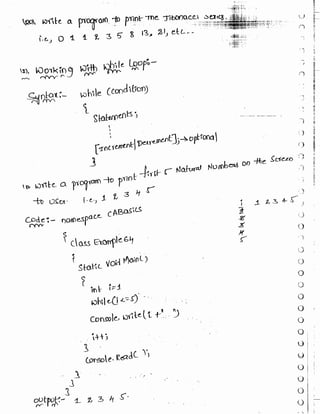 write a program to print The Fibonacci series.
i.e., 0 1 1 2 3 5 8 13, 21, etc...
Working With While Loop:-
Syntax:- while (condition)
{
Statements;
[Increment|Decrement];→optional
}
write a program to print first 5 Natural Numbers on the Screen
to user. i.e., 1 2 3 4 5
Code:- namespace CABasics
{ class Example64
{ static void Main()
{
int i=1
while(i<=5)
Console.write(i +" ")
i++;
}
Console.ReadL ();
}
}
}
output:- 1 2 3 4 5
i 1 2 3 4 5
1
2
3
4
5